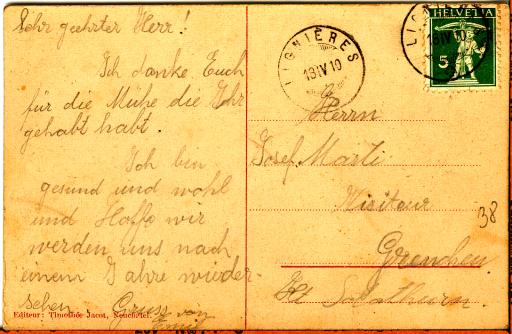 Sehr geehrter Herr!
Ich danke Euch
für die Mühe die Ihr
gehabt habt.
Ich bin
gesund und wohl
und Hoffe wir
werden uns nach
einem Jahre wieder-
sehen. Gruss von
Emil
Editeur: Timothée Jacot, Neuchâtel.
LIGNIÈRES
18 IV 10
HELVETIA
5
LIGNIÈRES
18 IV 10
Herrn
Josef Marti
Visiteur
Grenchen
Kt Solothurn.
38